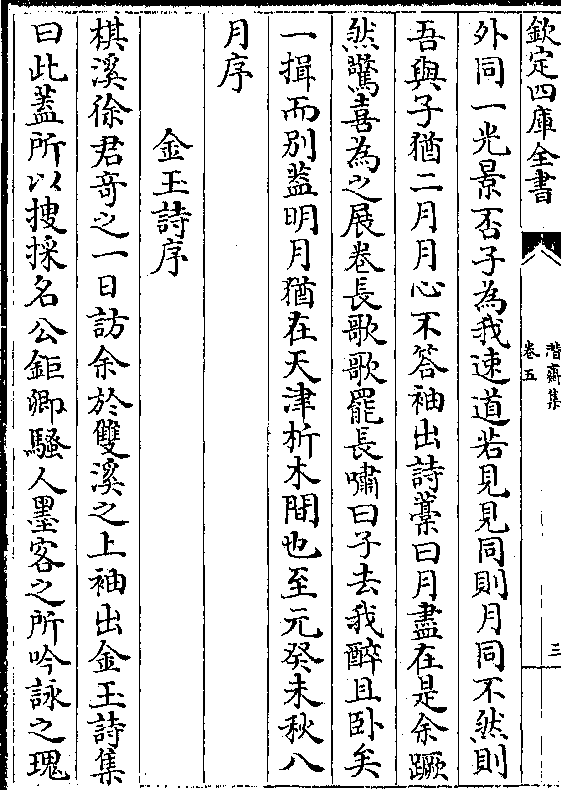 欽定四庫全書
潛齋集
卷五
三
外同一光景否子為我速道若見見同則月同不然則
吾與子猶二月月心不答袖出詩藁曰月盡在是余蹶
然驚喜為之展卷長歌歌罷長嘯曰子去我醉且卧矣
一揖而别葢明月猶在天津析木間也至元癸未秋八
月序
金玉詩序
棋溪徐君竒之一日訪余於雙溪之上袖出金玉詩集
曰此葢所以搜採名公鉅卿騷人墨客之所吟詠之瑰